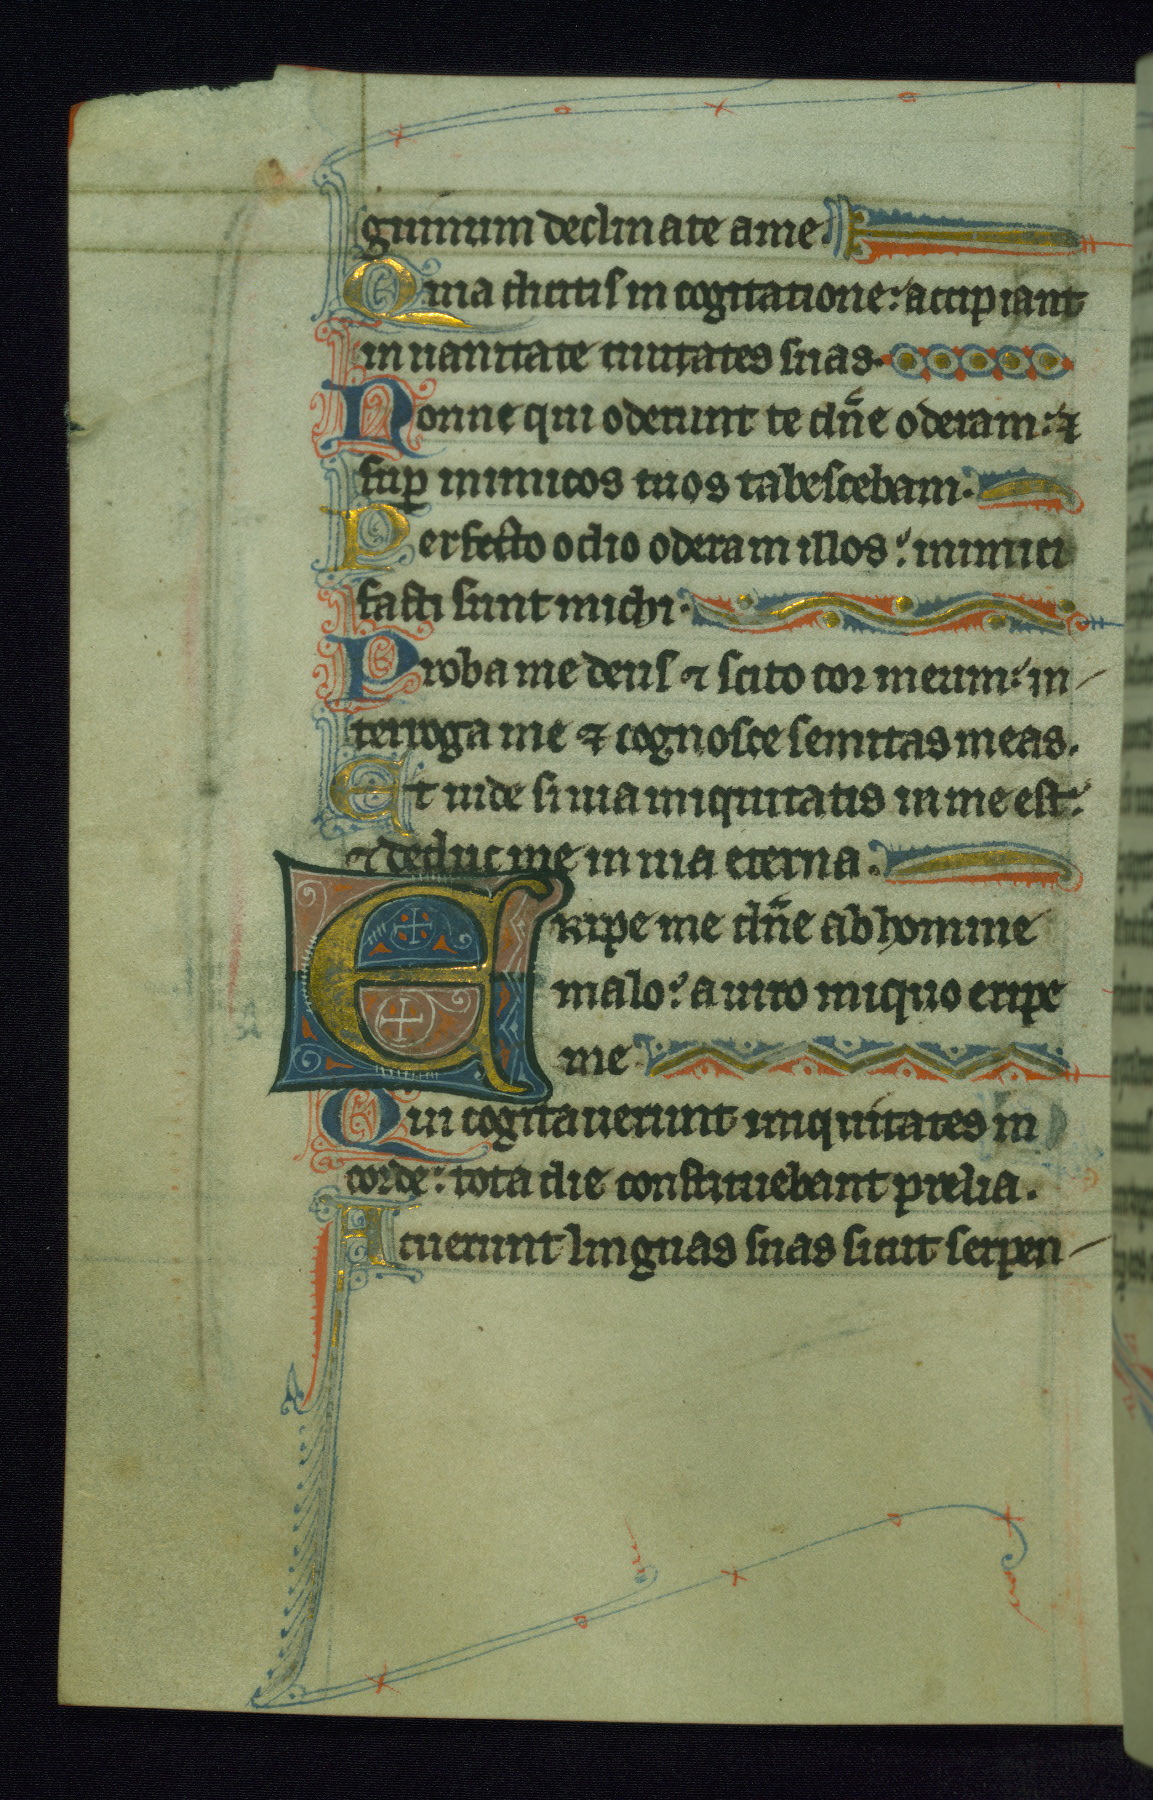 guinum declinate a me.
Quia dicitis in cogitatione: accipiant
in uanitate ciuitates suas.
Nonne qui oderunt te dn̄e oderam: ⁊
suꝑ inimicos tuos tabescebam.
Perfecto odio oderam illos: inimici
facti sunt michi.
Proba me deus ⁊ scito cor meum: in
terroga me ⁊ cognosce semitas meas.
Et uide si uia iniquitatis in me est:
⁊ deduc me in uia eterna.
Eripe me dn̄e ab homine
malo: a uiro iniquo eripe
me
Qui cogitauerunt iniquitates in
corde: tota die constituebant prelia.
Acuerunt linguas suas sicut serpen